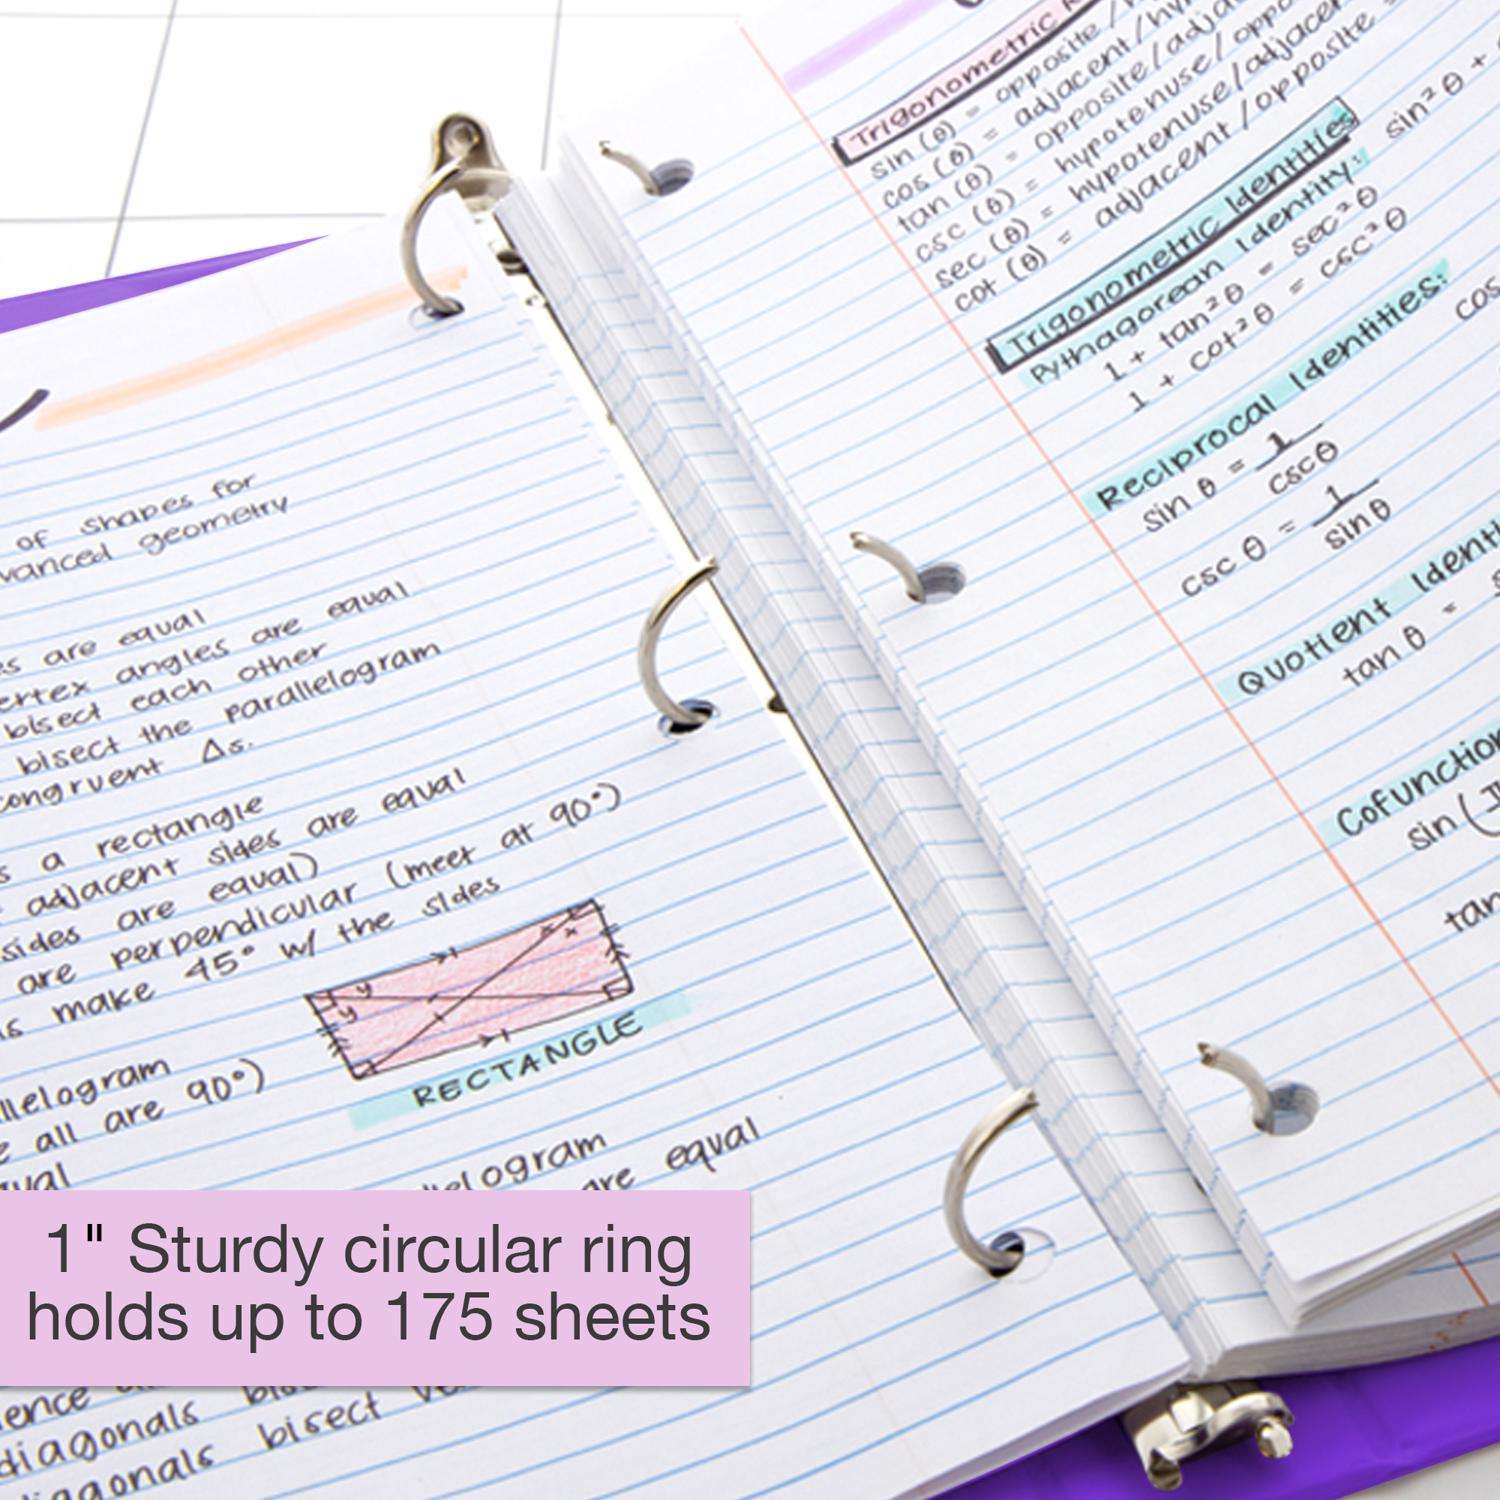 of shapes for
vanced geometry
es are equal
ertex angles are equal
bisect each other
bisect the parallelogram
congruent Δs.
s a rectangle
adjacent sides are equal
sides are equal)
are perpendicular (meet at 90°)
s make 45° w/ the sides
RECTANGLE
llelogram
e all are 90°)
llelogram
are equal
1" Sturdy circular ring
holds up to 175 sheets
diagonals
diagonals bisect
Trigonometric
sin (θ) = opposite /
cos (θ) = adjacent / hy
tan (θ) = opposite / adja
csc (θ) = hypotenuse / oppo
sec (θ) = hypotenuse / adjacen
cot (θ) = adjacent / opposite
Trigonometric Identities
Pythagorean Identity: sin²θ +
1 + tan²θ = sec²θ
1 + cot²θ = csc²θ
Reciprocal Identities:
sin θ = 1/cscθ cos
csc θ = 1/sinθ
Quotient Identi
tan θ =
Cofunction
sin (
tan